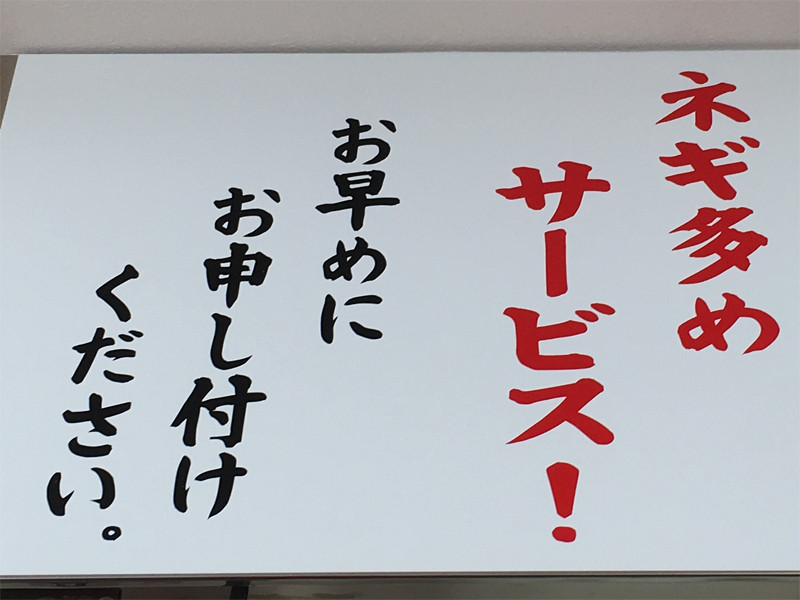 ネギ多め
サービス!
お早めに
お申し付け
ください。